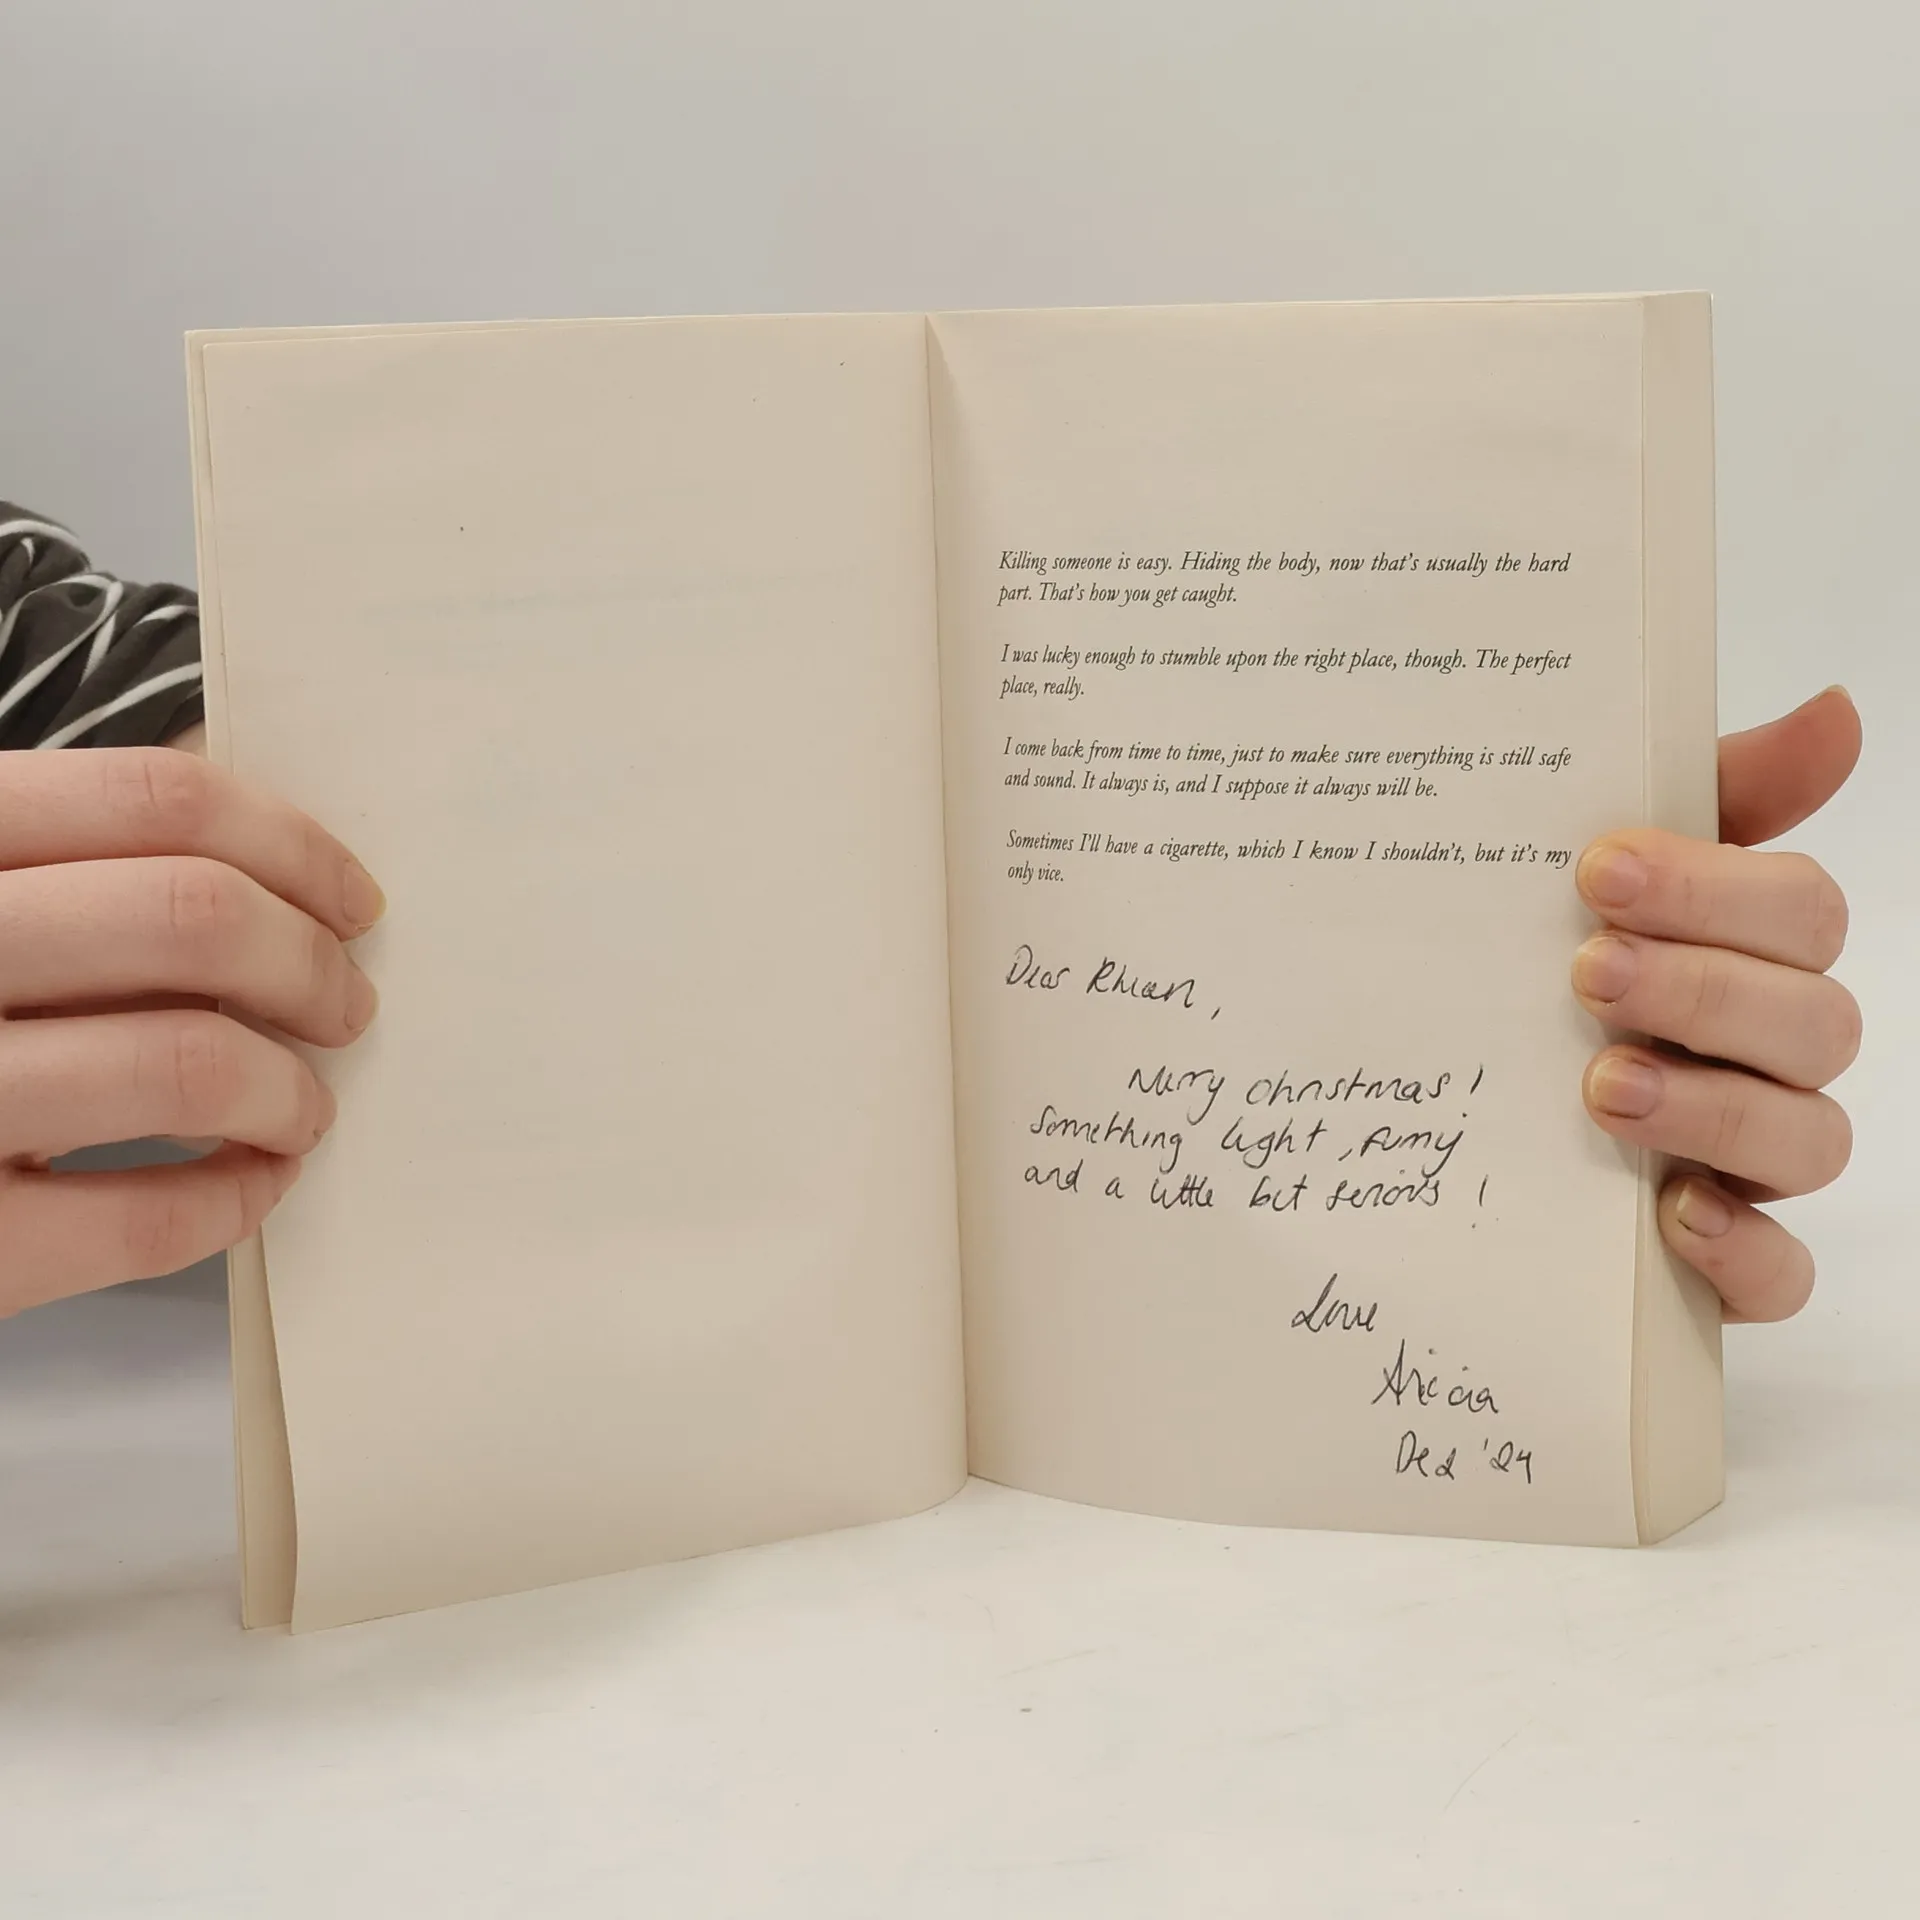 Killing someone is easy. Hiding the body, now that's usually the hard
part. That's how you get caught.
I was lucky enough to stumble upon the right place, though. The perfect
place, really.
I come back from time to time, just to make sure everything is still safe
and sound. It always is, and I suppose it always will be.
Sometimes I'll have a cigarette, which I know I shouldn't, but it's my
only vice.
Dear Rhian,
Merry Christmas!
Something light, funny
and a little bit serious!
Love
Alicia
Dec '24